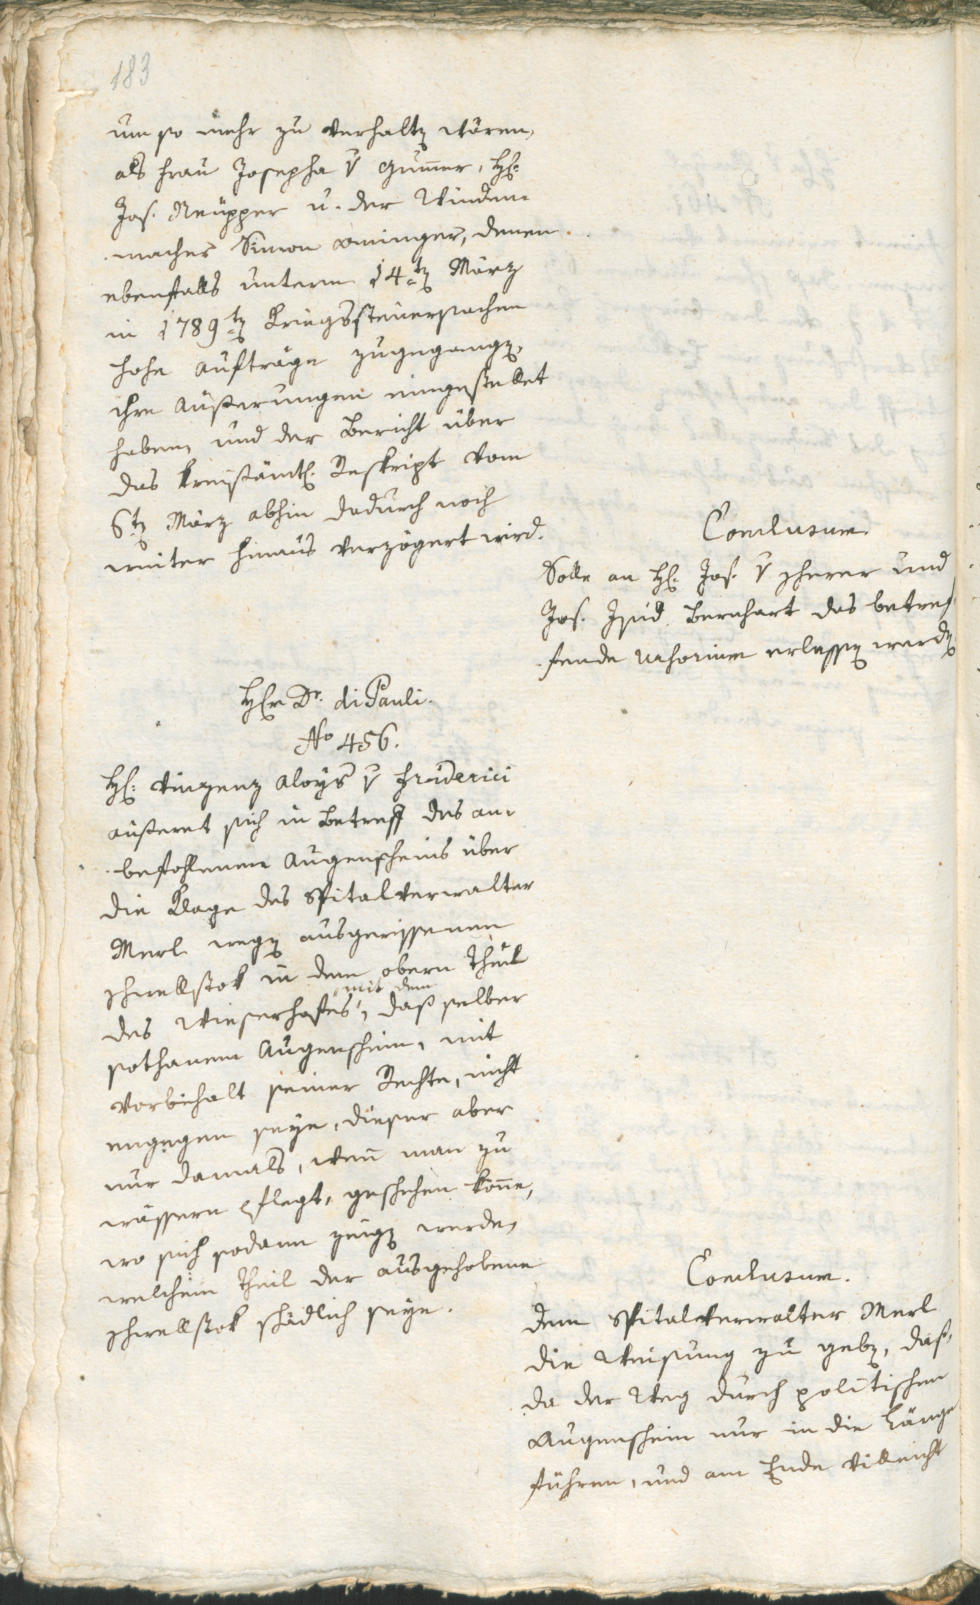 183
um so mehr zu verhaltẽ wären,
als Frau Josepha v Gum̄er, H:
Jos. Neupper u. der Winden-
macher Simon Aminger, denen
ebenfalls unterm 14tẽ März
in 1789tẽ Kriegssteuersachen
hohe Aufträge zugegangẽ,
ihre Äußerungen eingestellet
haben, und der Bericht über
das kreisämtl: Reskript vom
6tẽ März abhin dadurch noch
weiter hinaus verzögert wird.
Conclusum.
Solle an H: Jos. v Zherer und
Jos. Isid. Bernhart das betref-
fende Urhorium erlassẽ werdẽ
Her Dr. di Pauli.
No 456.
H: Vinzenz Aloys v Friderici
äußeret sich in Betreff des an-
befohlenen Augenscheins über
die Klage des Spitalverwalter
Merl wegẽ ausgerissenen
Schwellstok in dem obern Theil
mit dem
des Wieserhofes, daß selber
sothanem Augenschein, mit
Vorbehalt seiner Rechte, nicht
engegen seye, dieser aber
nur damals, wen̄ man zu
wässern pflegt, geschehen kön̄e,
wo sich sodann zeigẽ werde,
welchem Theil der ausgehobene
Schwellstok schädlich seye.
Conclusum.
dem Spitalverwalter Merl
die Weisung zu gebẽ, daß,
da der Weg durch politischen
Augenschein nur in die Länge
führen, und am Ende villeicht